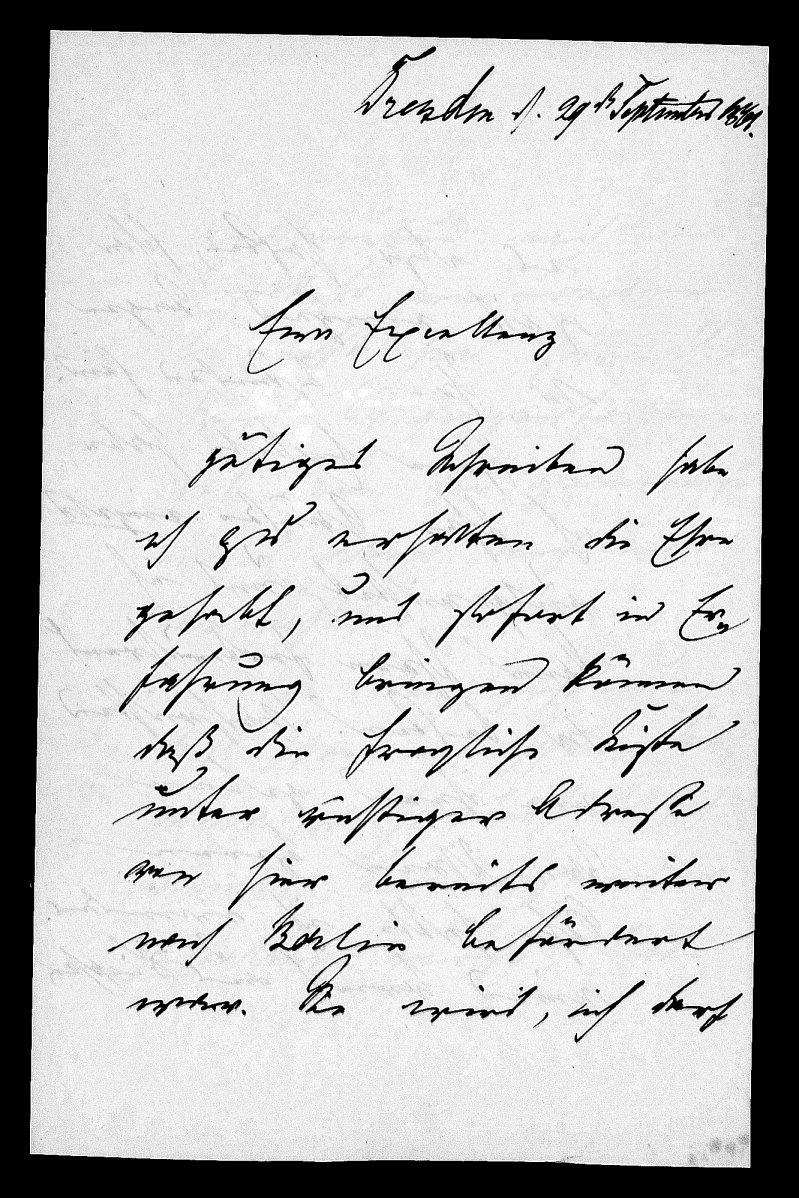 Dresden d. 29ᵗ September
Euer Excellenz
gütiges Schreiben habe
ich zu erhalten die Ehre
gehabt, und sofort in Er-
fahrung bringen können
daß die fragliche Kiste
unter richtiger Adresse
von hier bereits weiter
nach Berlin befördert
war. Sie wird, ich darf